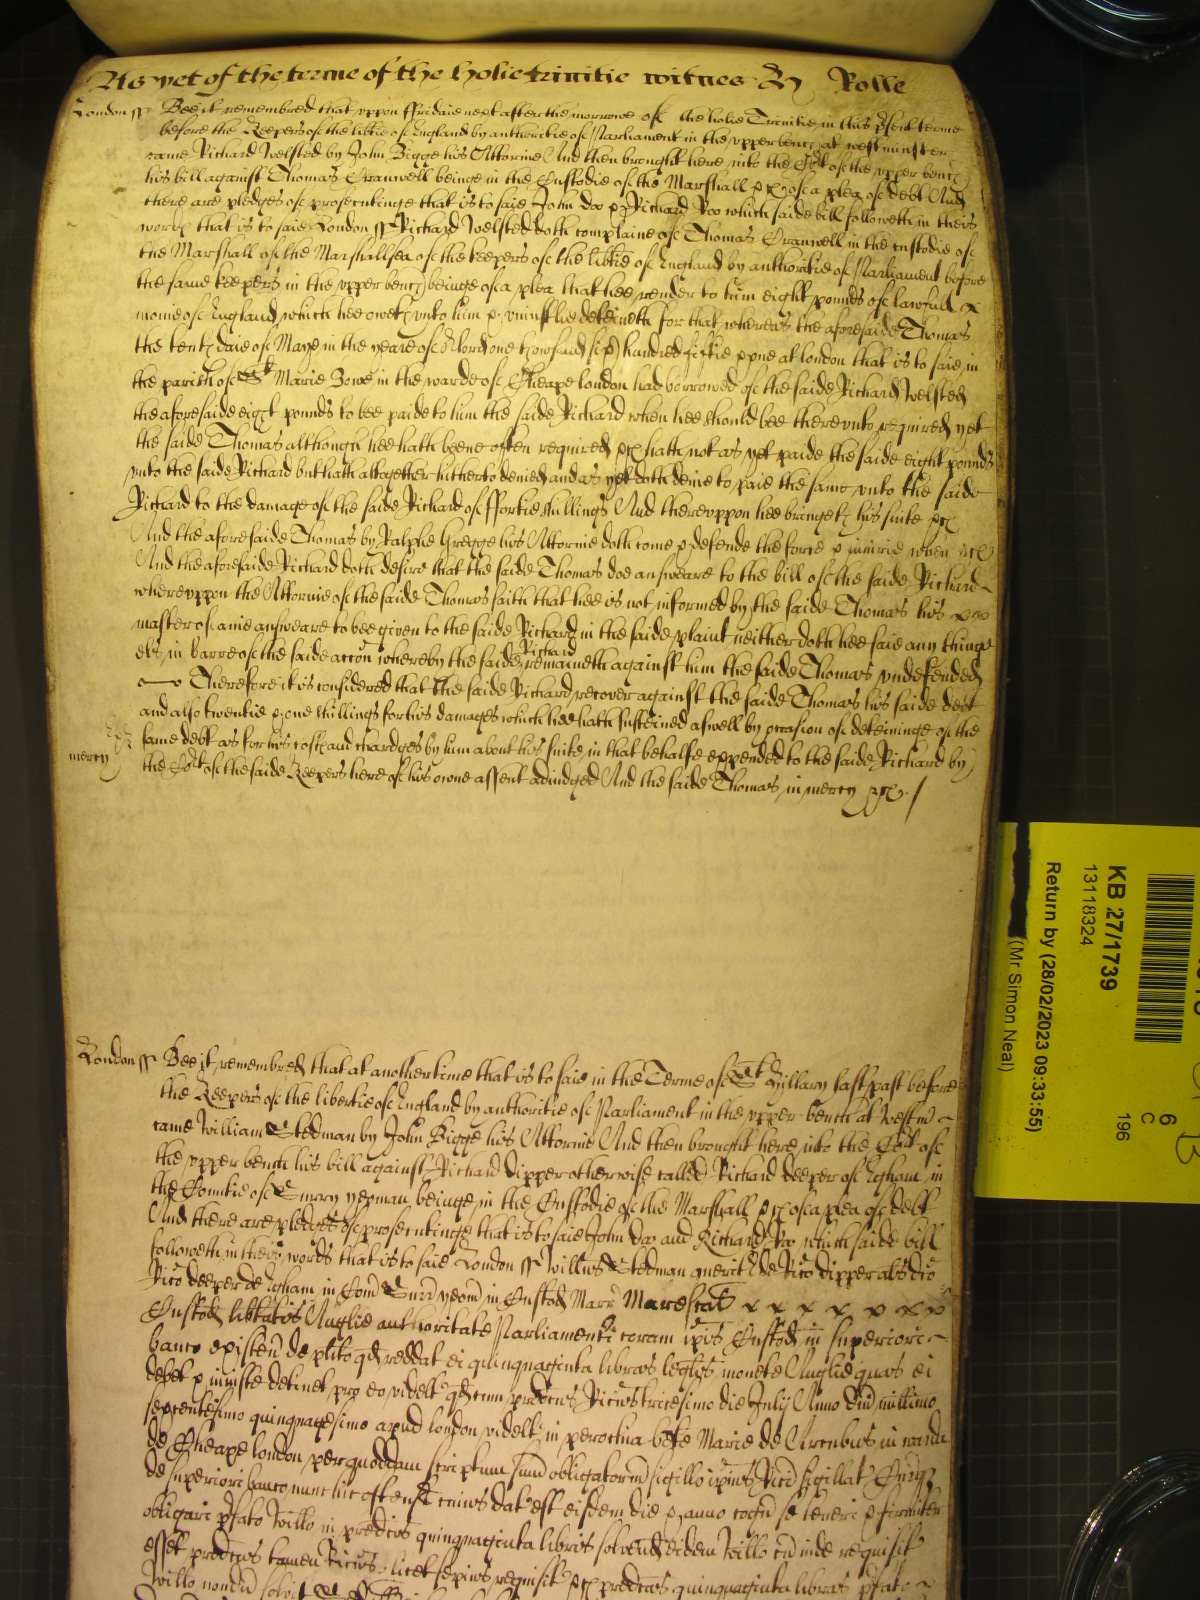 As yet of the terme of the holie trinitie witnes Rolle
London ss Bee it remembred that uppon ffridaie next after the morrowe of the holie Trinitie in this psent terme
before the Keepers of the libtie of England by authoritie of Parliament in the upper bench at westminster
came Richard Welsted by John Bigge his Attornie And then brought here into the Cort of the upper bench
his bill against Thomas Cranwell beinge in the Custodie of the Marshall &c of a plea of debt And
there are pledges of prosecutinge that is to saie John doo & Richard Roo which saide bill followeth in theis
words that is to saie London ss Richard Welsted doth complaine of Thomas Cranwell in the custodie of
the Marshall of the Marshallsea of the keepers of the libtie of England by authoritie of Parliament before
the same keepers in the upper bench beinge of a plea that hee render to him eight pounds of lawfull
monie of England which hee oweth unto him & uniustlie deteineth for that whereas the aforesaide Thomas
the tenth daie of Maye in the yeare of or lord one thowsand six hundred fiftie & one at london that is to saie in
the parish of St Marie Bowe in the warde of Cheape london had borrowed of the saide Richard Welsted
the aforesaide eight pounds to bee paide to him the saide Richard when hee should bee thereunto required yet
the saide Thomas although hee hath beene often required &c hath not as yet paide the saide eight pounds
unto the saide Richard but hath altogether hitherto denied and as yet doth denie to paie the same unto the saide
Richard to the damage of the saide Richard of ffortie shillings And thereuppon hee bringeth his suite &c
And the aforesaide Thomas by Ralphe Gregge his Attornie doth come & defende the force & iniurie when &c
And the aforesaide Richard doth desire that the saide Thomas doe answeare to the bill of the saide Richard
whereuppon the Attornie of the saide Thomas saith that hee is not informed by the saide Thomas his
master of anie answeare to bee given to the saide Richard in the saide plaint neither doth hee saie any thinge
els in barre of the saide accon whereby the saide Richard remaineth against him the saide Thomas undefended
Therefore it is considered that the saide Richard recover against the saide Thomas his saide debt
and also twentie & one shillings for his damages which hee hath susteined aswell by occasion of deteininge of the
same debt as for his costs and chardges by him about his suite in that behalfe expended to the saide Richard by
mercy the Cort of the saide Keepers here of his owne assent adiudged And the saide Thomas in mercy &c
London ss Bee it remembred that at another time that is to saie in the Terme of St Hillary last past before
the Keepers of the libertie of England by authoritie of Parliament in the upper bench at Westmr
came William Stedman by John Bigge his Attornie And then brought here into the Cort of
the upper bench his bill against Richard dipper otherwise called Richard deeper of Egham in
the Countie of Surrey yeoman beinge in the Custodie of the Marshall &c of a plea of debt
And there are pledges of prosecutinge that is to saie John doo and Richard Roo which saide bill
followeth in theis words that is to saie London ss Willms Stedman querit de Rico dipper als dco
Rico deeper de Egham in Com Surr yeom in Custod Marr Marescal
Custod libtatis Anglie authoritate Parliamenti coram ipis Custod in superiori
banco existen de plito qd reddat ei quinquaginta libras legalis monete Anglie quas ei
debet & iniuste detinet pro eo videlt qd cum predcus Ricus tricesimo die July Anno dni millimo
sexcentesimo quinquagesimo apud london videlt in parochia bte Marie de Arcubus in warda
de Cheape london per quoddam scriptum suum obligatorm sigillo ipius Rici sigillat Cur
de superiori banco nunc hic ostens cuius dat est eisdem die & anno cogn se teneri & firmiter
obligari pfato Willo in predcis quinquaginta libris solvend eidem Willo cu inde requisit
esset predcus tamen Ricus licet sepius requisit &c predcas quinquaginta libras pfato
Willo nondu solvit
KB 27/1739
13118324
Return by (28/02/2023 09:33:55)
(Mr Simon Neal)
6
C
196
B